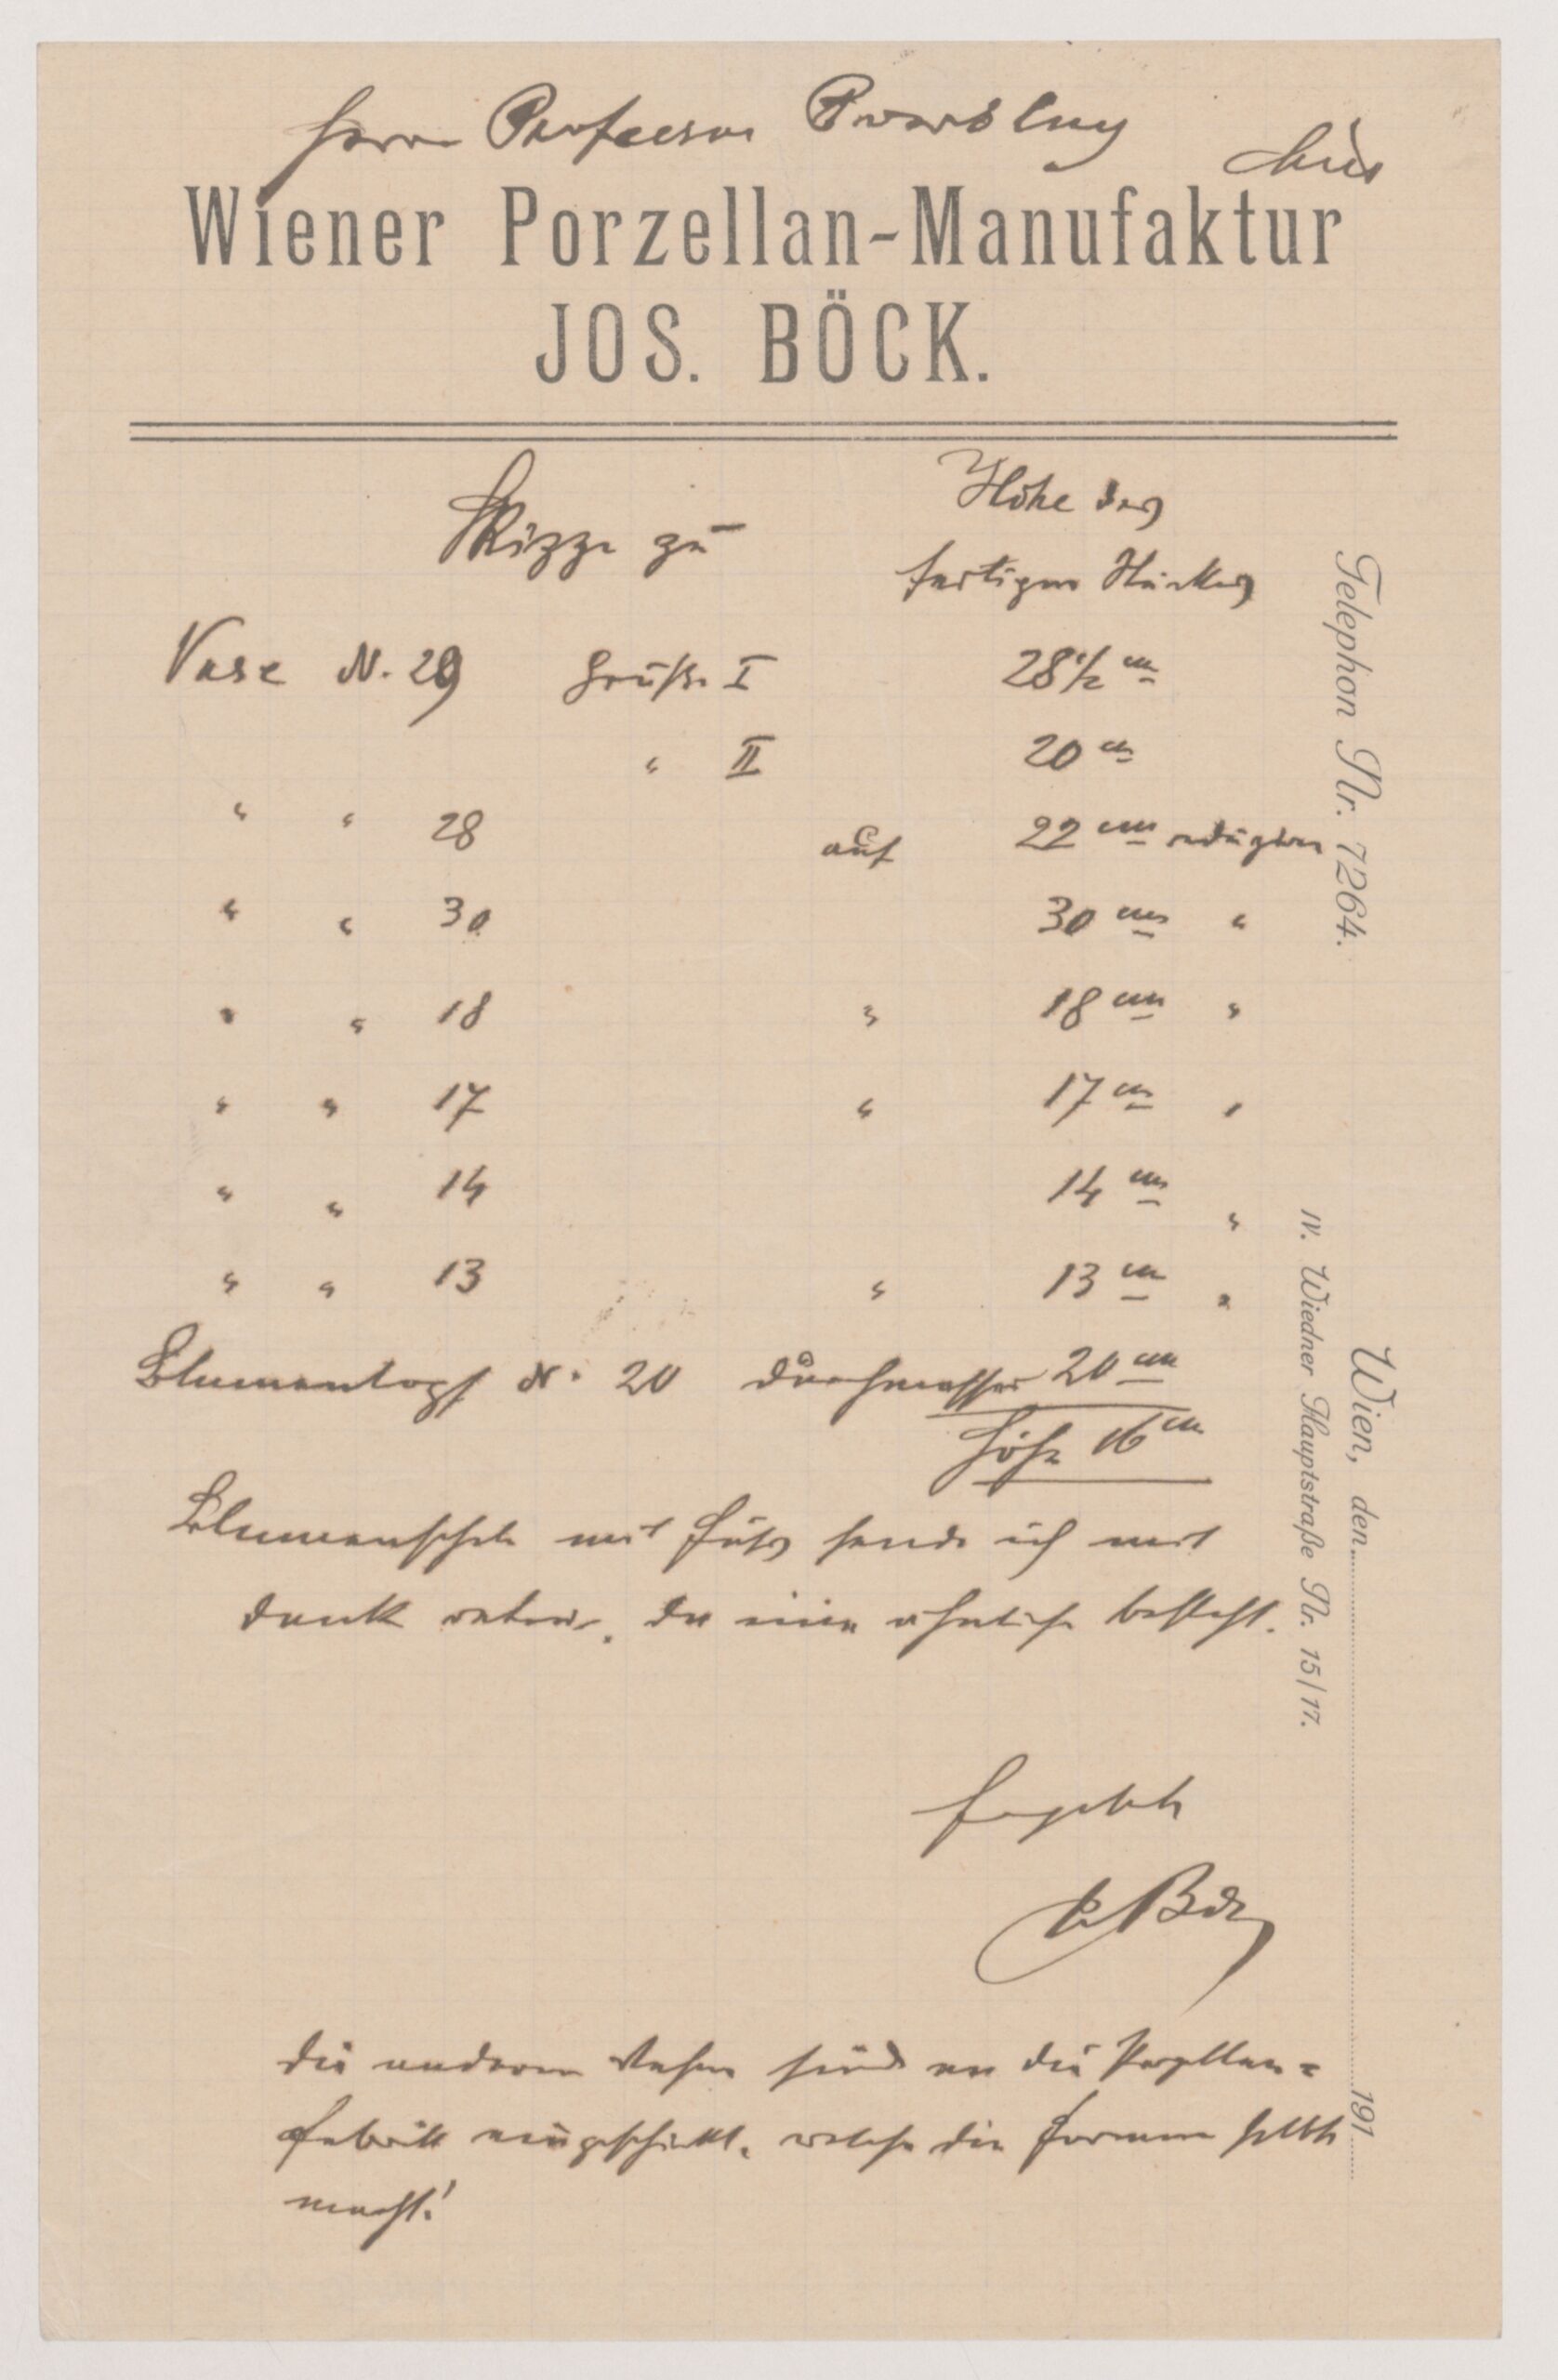 Herrn Professor Powolny
Wiener Porzellan-Manufaktur
JOS. BÖCK.
Skizze zu
Höhe des
fertigen Stückes
Vase N. 29 Größe I 28 1/2 cm
" II 20 cm
" " 28 auf 22 cm reduziren
" " 30 30 cm "
" " 18 " 18 cm "
" " 17 " 17 cm "
" " 14 14 cm "
" " 13 " 13 cm "
Blumentopf N. 20 Durchmesser 20 cm
Höhe 16 cm
Blumenschale mit Fuß sende ich mit
Dank retour, da eine ähnliche besteht.
Böck
Die anderen Vasen sind an die Porzellan=
fabrik eingeschickt, welche die Formen selbst
macht!
Telephon Nr. 7264.
IV. Wiedner Hauptstraße Nr. 15/17.
Wien, den 191